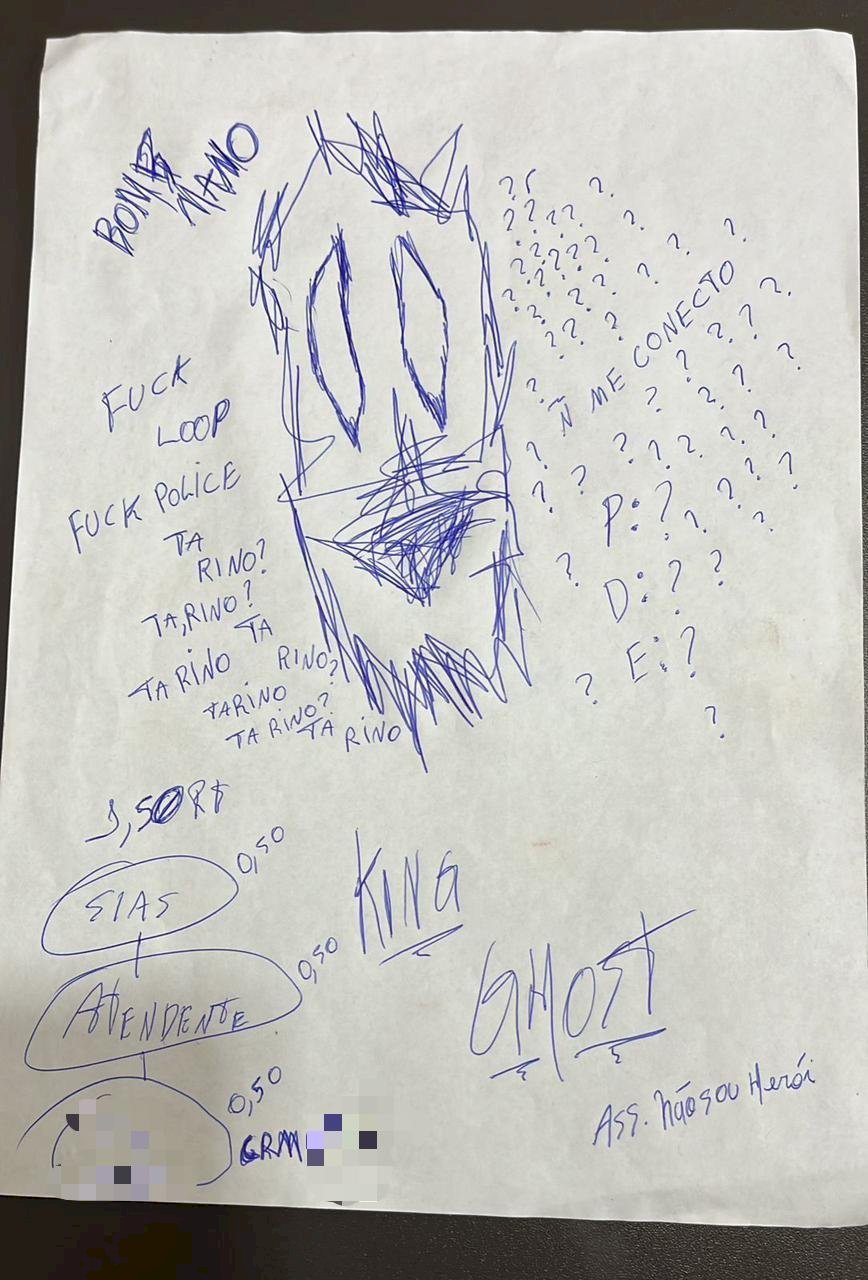 BOM
MANO
FUCK
LOOP
FUCK POLICE
TA
RINO?
TA,RINO?
TA
RINO?
TA RINO
TARINO
TA RINO?
TA RINO
? ? ? ? ? ? ? ?
Ñ ME CONECTO
P:?
D:??
E:?
?
?
1,50 R$
SIAS
0,50
ATENDENTE
0,50
0,50
CRM
KING
GHOST
Ass. Não sou Herói